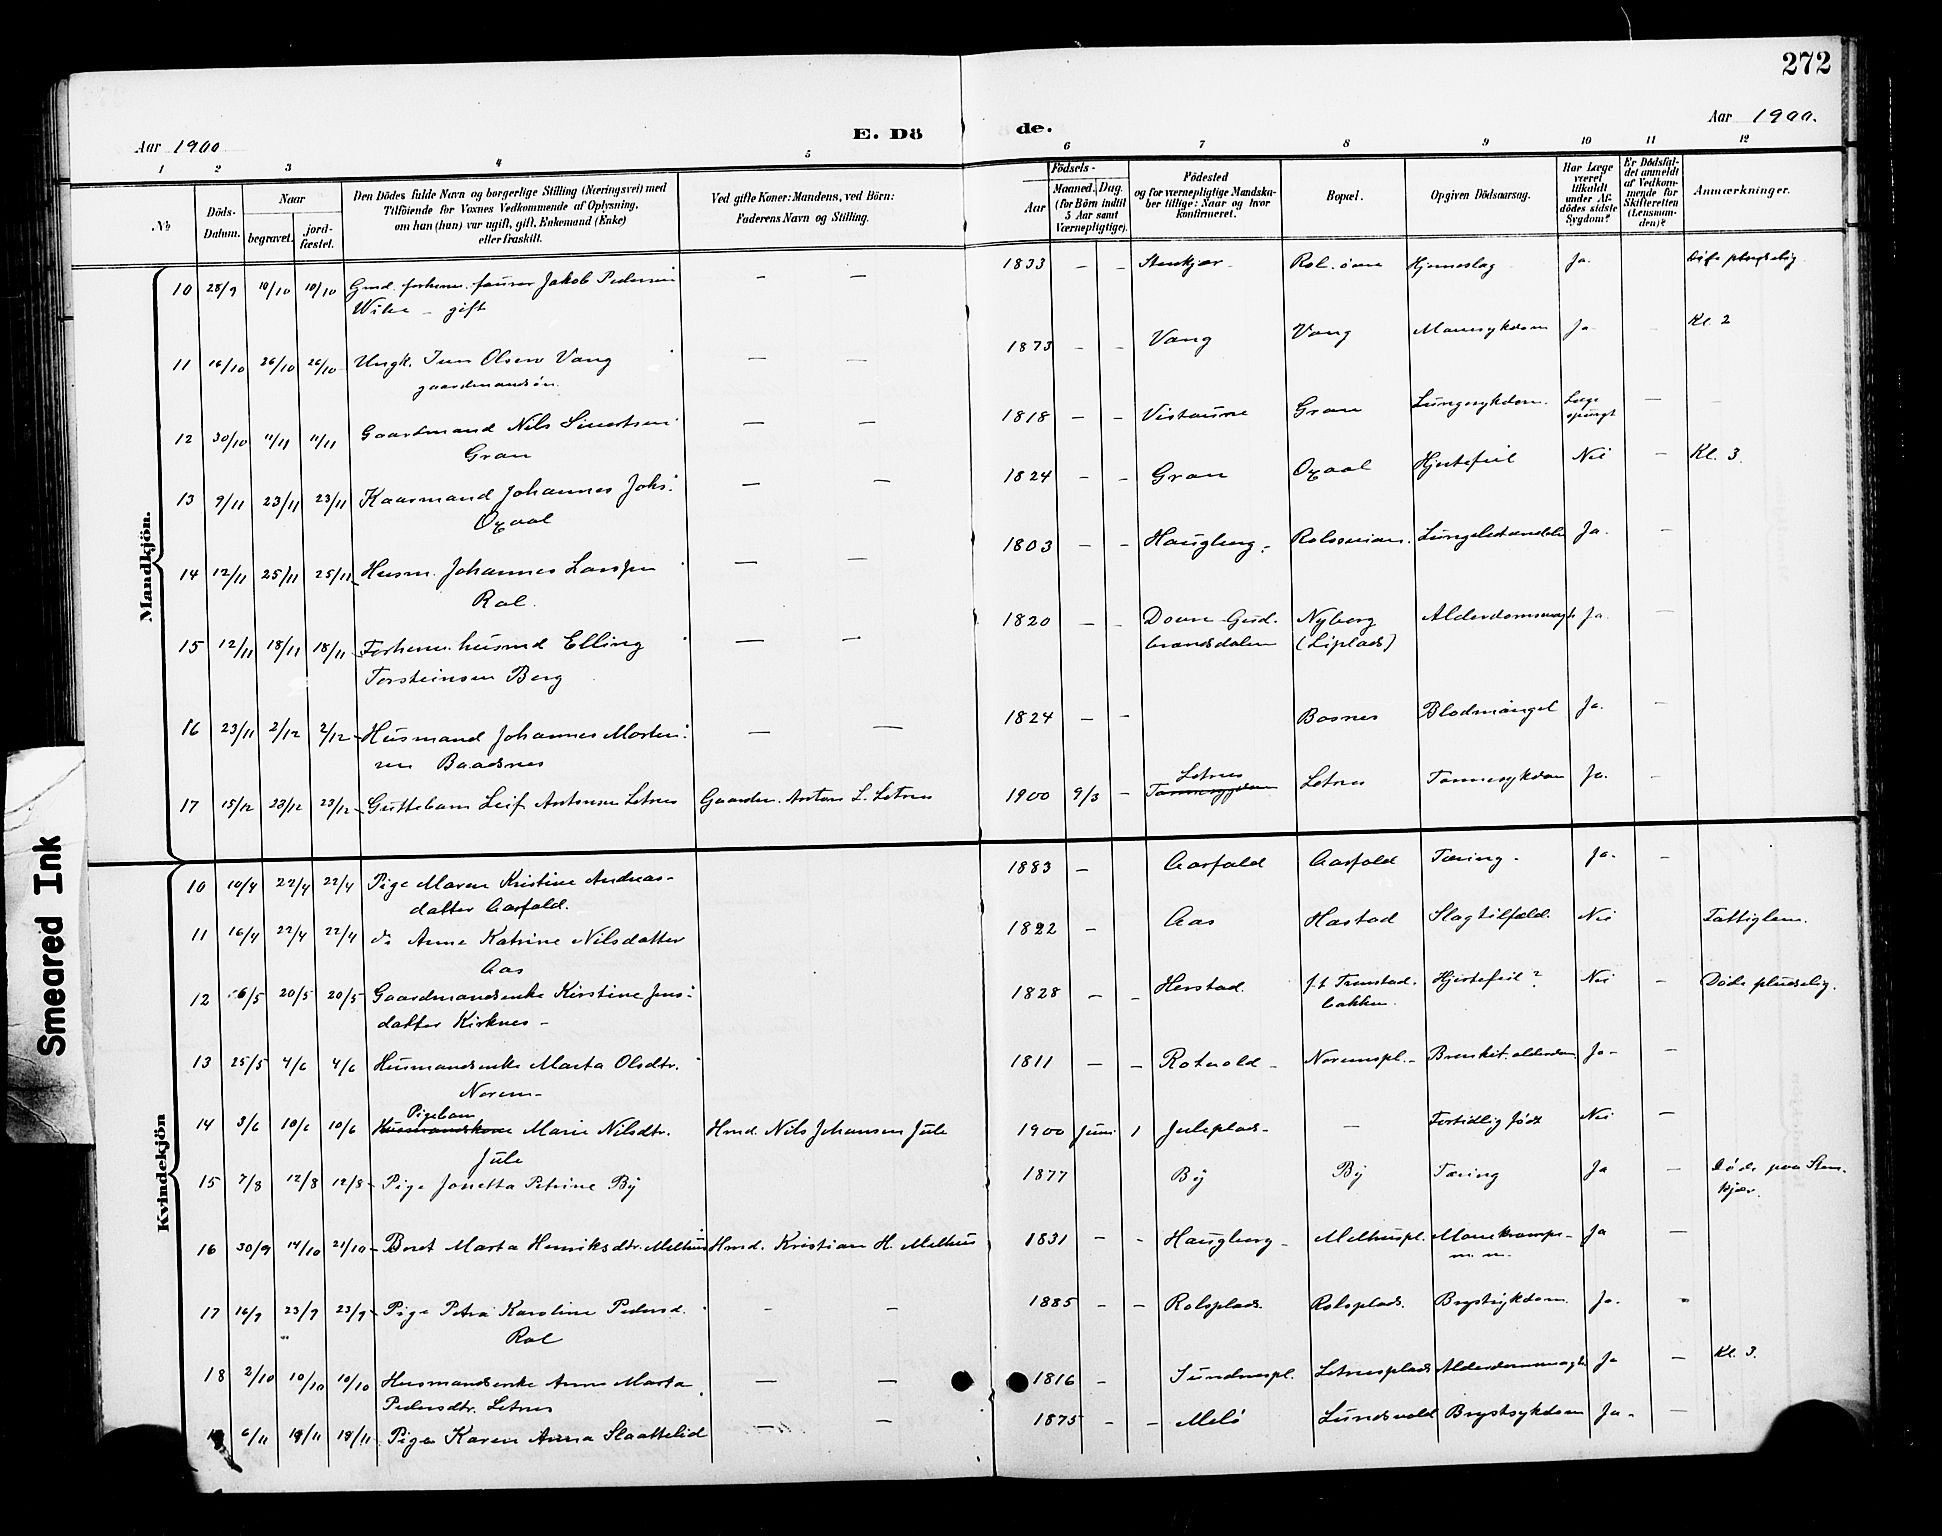 272
Aar 1900
E. Dö
de.
Aar 1900.
1 2 3 4 5 6 7 8 9 10 11 12
№
Döds-Datum.
Naar
begravet.
jord-fæstet.
Den Dödes fulde Navn og borgerlige Stilling (Næringsvei) med
Tilföiende for Voxnes Vedkommende af Oplysning,
om han (hun) var ugift, gift, Enkemand (Enke)
eller fraskilt.
Ved gifte Koner: Mandens, ved Börn:
Faderens Navn og Stilling.
Födsels-
Aar
Maaned. Dag.
(for Börn indtil
5 Aar samt
Værnepligtige).
Födested
og for værnepligtige Mandska-
ber tillige: Naar og hvor
konfirmeret.
Bopæl.
Opgiven Dödsaarsag.
Har Læge
været
tilkaldt
under Af-
dödes sidste
Sygdom?
Er Dödsfal-
det anmeldt
af Vedkom-
mende for
Skifteretten
(Lensman-
den)?
Anmærkninger.
Mandkjön.
10 28/9 10/10 10/10 Gmd. forhenv. Jakob Pedersen — — 1833 — — Stenkjær Rol. Hjerneslag Ja. Døde pludselig
— gift
11 16/10 26/10 26/10 Ungk. Olsen Vang — — 1873 — — Vang Vang Mavesykdom Ja — Kl. 2
gaardmandsøn.
12 30/10 11/11 11/11 Gaardmand Nils Sivertsen — — 1818 — — Gran Lungesykdom. Læge —
Gran spurgt
13 9/11 23/11 23/11 Kaarmand Johannes Johs: — — 1824 — — Gran Oxaal Hjertefeil Nei — Kl. 3.
Oxaal
14 12/11 25/11 25/11 Husm. Johannes Larsen — — 1803 — — Haugberg. Ja. —
Rol.
15 12/11 18/11 18/11 Forhenv. husmd Elling — — 1820 — — Dovre Gud- Nyborg Ja. —
Torsteinsen Berg brandsdalen
16 23/11 2/12 2/12 Husmand Johannes Morten: — — 1824 — — Bosnes Blodmangel Ja. —
sen Baadsnes
17 15/12 23/12 23/12 Guttebarn Leif Antonsen Letnes Gaardm. Anton L. Letnes 1900 9/3 — Letnes Letnes Ja. —
Kvindekjön
10 10/4 22/4 22/4 Pige Maren Kristine Andreas- 1883 — Aarfald Aarfald Tæring. Ja. —
datter Aarfald.
11 16/4 22/4 22/4 do Anne Katrine Nilsdatter 1822 — Aas Hastad Slagtilfæld. Nei Fattiglem.
Aas
12 6/5 20/5 20/5 Gaardmandsenke Kirstine Jens: 1828 — — Herstad. f.t. Hjertefeil? Nei — Døde pludselig.
datter Kirknes — bakken.
13 25/5 4/6 4/6 Husmandsenke Marta Olsdtr. 1811 — — Rotvold — Noremspl. — Bronkit. alderdom Ja — —
Norem —
Pigebarn
14 3/6 10/6 10/6 Husmandskone Marie Nilsdtr. Hmd. Nils Johansen Jule 1900 Juni 1 Juleplads — — Fortidlig født Nei —
Jule
15 7/8 12/8 12/8 Pige Jonetta Petrine By 1877 By By Tæring Ja — Døde paa Sten-
kjær.
16 30/9 14/10 21/10 Beret Marta Henriksdtr. Melhus Hmd. Kristian H. Melhus 1831 — — Haugberg — Melhuspl. Mavekrampe — Ja —
m. m.
17 16/9 23/9 23/9 Pige Petra Karoline Pedersd. — — 1885 — — Rolsplads. Rolsplads. Brystsykdom. Ja. —
Rol
18 2/10 10/10 10/10 Husmandsenke Anne Marta — — 1816 — Sundnespl. Letnesplads Ja — Kl. 3.
Pedersdtr. Letnes
6/11 19/11 19/11 Pige Karen Anna Slaattelid — — 1875 — — Melø Lundsvold Brystsykdom Ja. —
Smeared Ink